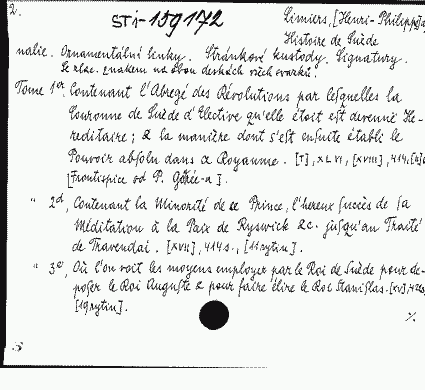 2.
STi-159172
Limiers, [Henri-Philippe] de
Histoire de Suède
nalie. Ornamentální linky. Stránkové kustody. Signatury.
Se zlac. znakem na obou deskách všech svazků.
Tome 1er, Contenant l'Abregé des Révolutions par lesquelles la
Couronne de Suède d'Elective qu'elle étoit est devenue He-
reditaire; & la manière dont s'est ensuite établi le
Pouvoir absolu dans ce Royaume. [I], XLVI, [XVIII], 414,
[Frontispice od P. ].
" 2d, Contenant la Minorité de ce Prince, l'hereux succès de sa
Méditation à la Paix de Ryswick &c. jusqu'au Traité
de Travendal. [XVII], 414 s., [11 rytin].
" 3e, Où l'on voit les moyens employez par le Roi de Suède pour de-
poser le Roi Auguste & pour faire élire le Roi Stanislas. [XV],
[19 rytin].
%
S